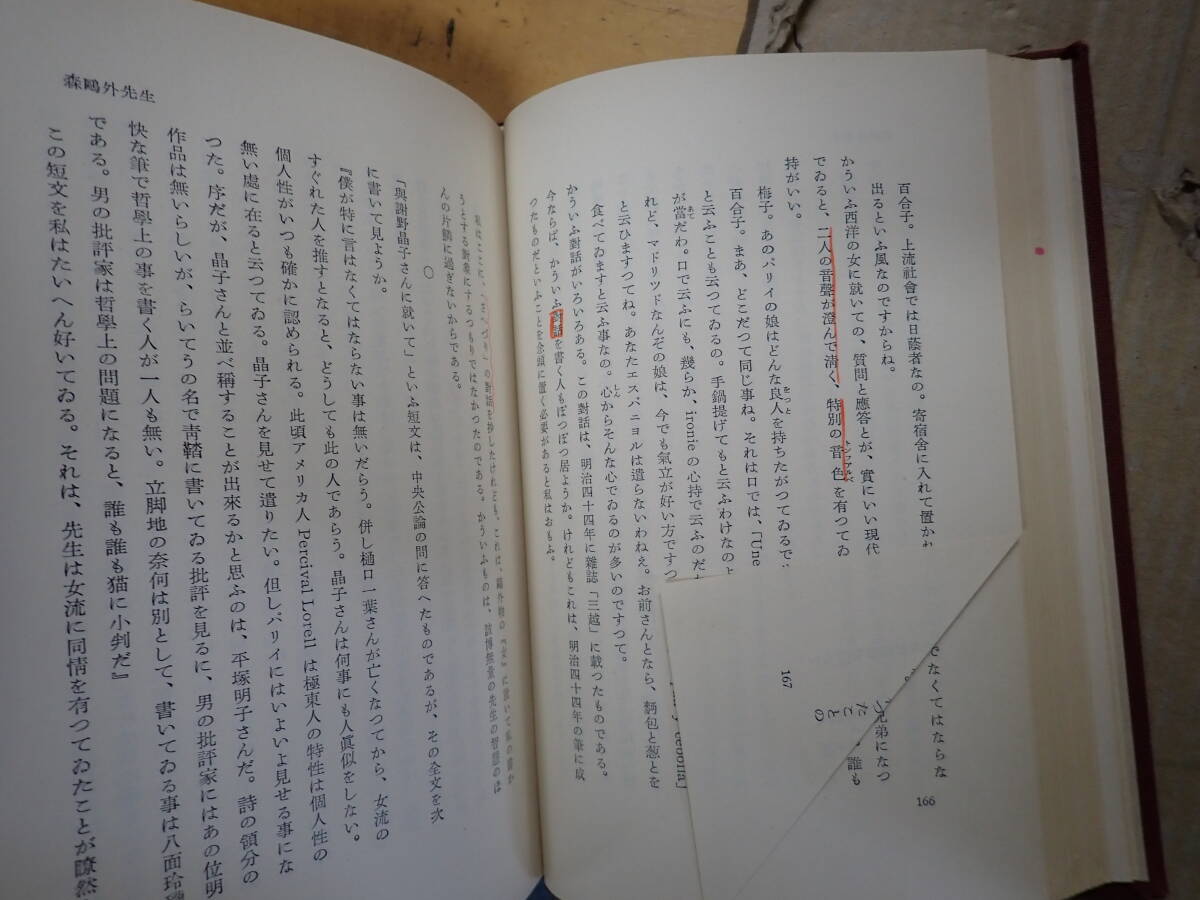 百合子。上流社會では日蔭者なの。寄宿舍に入れて置かか
出るといふ風なのですからね。
かういふ西洋の女に就いての、質問と應答とが、實にいい現代
でゐると、二人の音聲が澄んで淸く、特別の音色を有つてゐ
持がいい。
梅子。あのパリイの娘はどんな良人を持ちたがつてゐるで
百合子。まあ、どこだつて同じ事ね。それは口では、「Une
と云ふことも云つてゐるの。手鍋提げてもと云ふわけなのよ
が當だわ。口で云ふにも、幾らか、ironie の心持で云ふのだ
れど、マドリツドなんぞの娘は、今でも氣立が好い方ですつ
と云ひますつてね。あなたエスパニヨルは遣らないわねえ。お前さんとなら、麪包と葱とを
食べてゐますと云ふ事なの。心からそんな心でゐるのが多いのですつて。
かういふ對話がいろいろある。この對話は、明治四十四年に雜誌「三越」に載つたものである。
今ならば、かういふ對話を書く人もぽつぽつ居ようか。けれどもこれは、明治四十四年の筆に成
つたものだといふことを念頭に置く必要があると私はおもふ。
でなくてはならな
兄弟になつ
、誰も
たことの
cebolla」
167
166
森鷗外先生
私はここに、「さへづり」の對話を抄したけれども、これは、鷗外物の『女』に就いて私の書か
うとする對象にするつもりではなかつたのである。かういふものは、該博無棄の先生の智慧のほ
んの片鱗に過ぎないからである。
〇
「與謝野晶子さんに就いて」といふ短文は、中央公論の問に答へたものであるが、その全文を次
に書いて見ようか。
『僕が特に言はなくてはならない事は無いだらう。併し樋口一葉さんが亡くなつてから、女流の
すぐれた人を推すとなると、どうしても此の人であらう。晶子さんは何事にも人眞似をしない。
個人性がいつも確かに認められる。此頃アメリカ人 Percival Lorell は極東人の特性は個人性の
無い處に在ると云つてゐる。晶子さんを見せて遣りたい。但しパリイにはいよいよ見せる事にな
つた。序だが、晶子さんと並べ稱することが出來るかと思ふのは、平塚明子さんだ。詩の領分の
作品は無いらしいが、らいてうの名で靑鞜に書いてゐる批評を見るに、男の批評家にはあの位明
快な筆で哲學上の事を書く人が一人も無い。立脚地の奈何は別として、書いてゐる事は八面玲瓏
である。男の批評家は哲學上の問題になると、誰も誰も猫に小判だ』
この短文を私はたいへん好いてゐる。それは、先生は女流に同情を有つてゐたことが瞭然